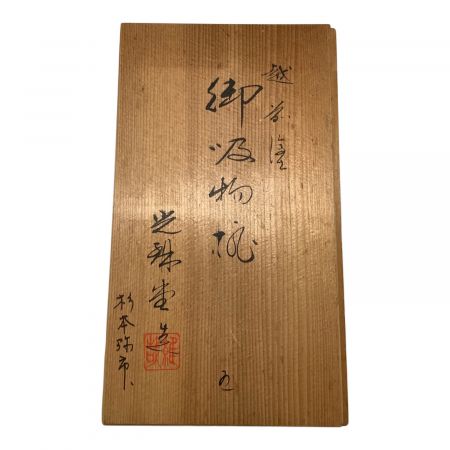 越前塗
御吸物椀
五
光琳堂造
杉本弥市